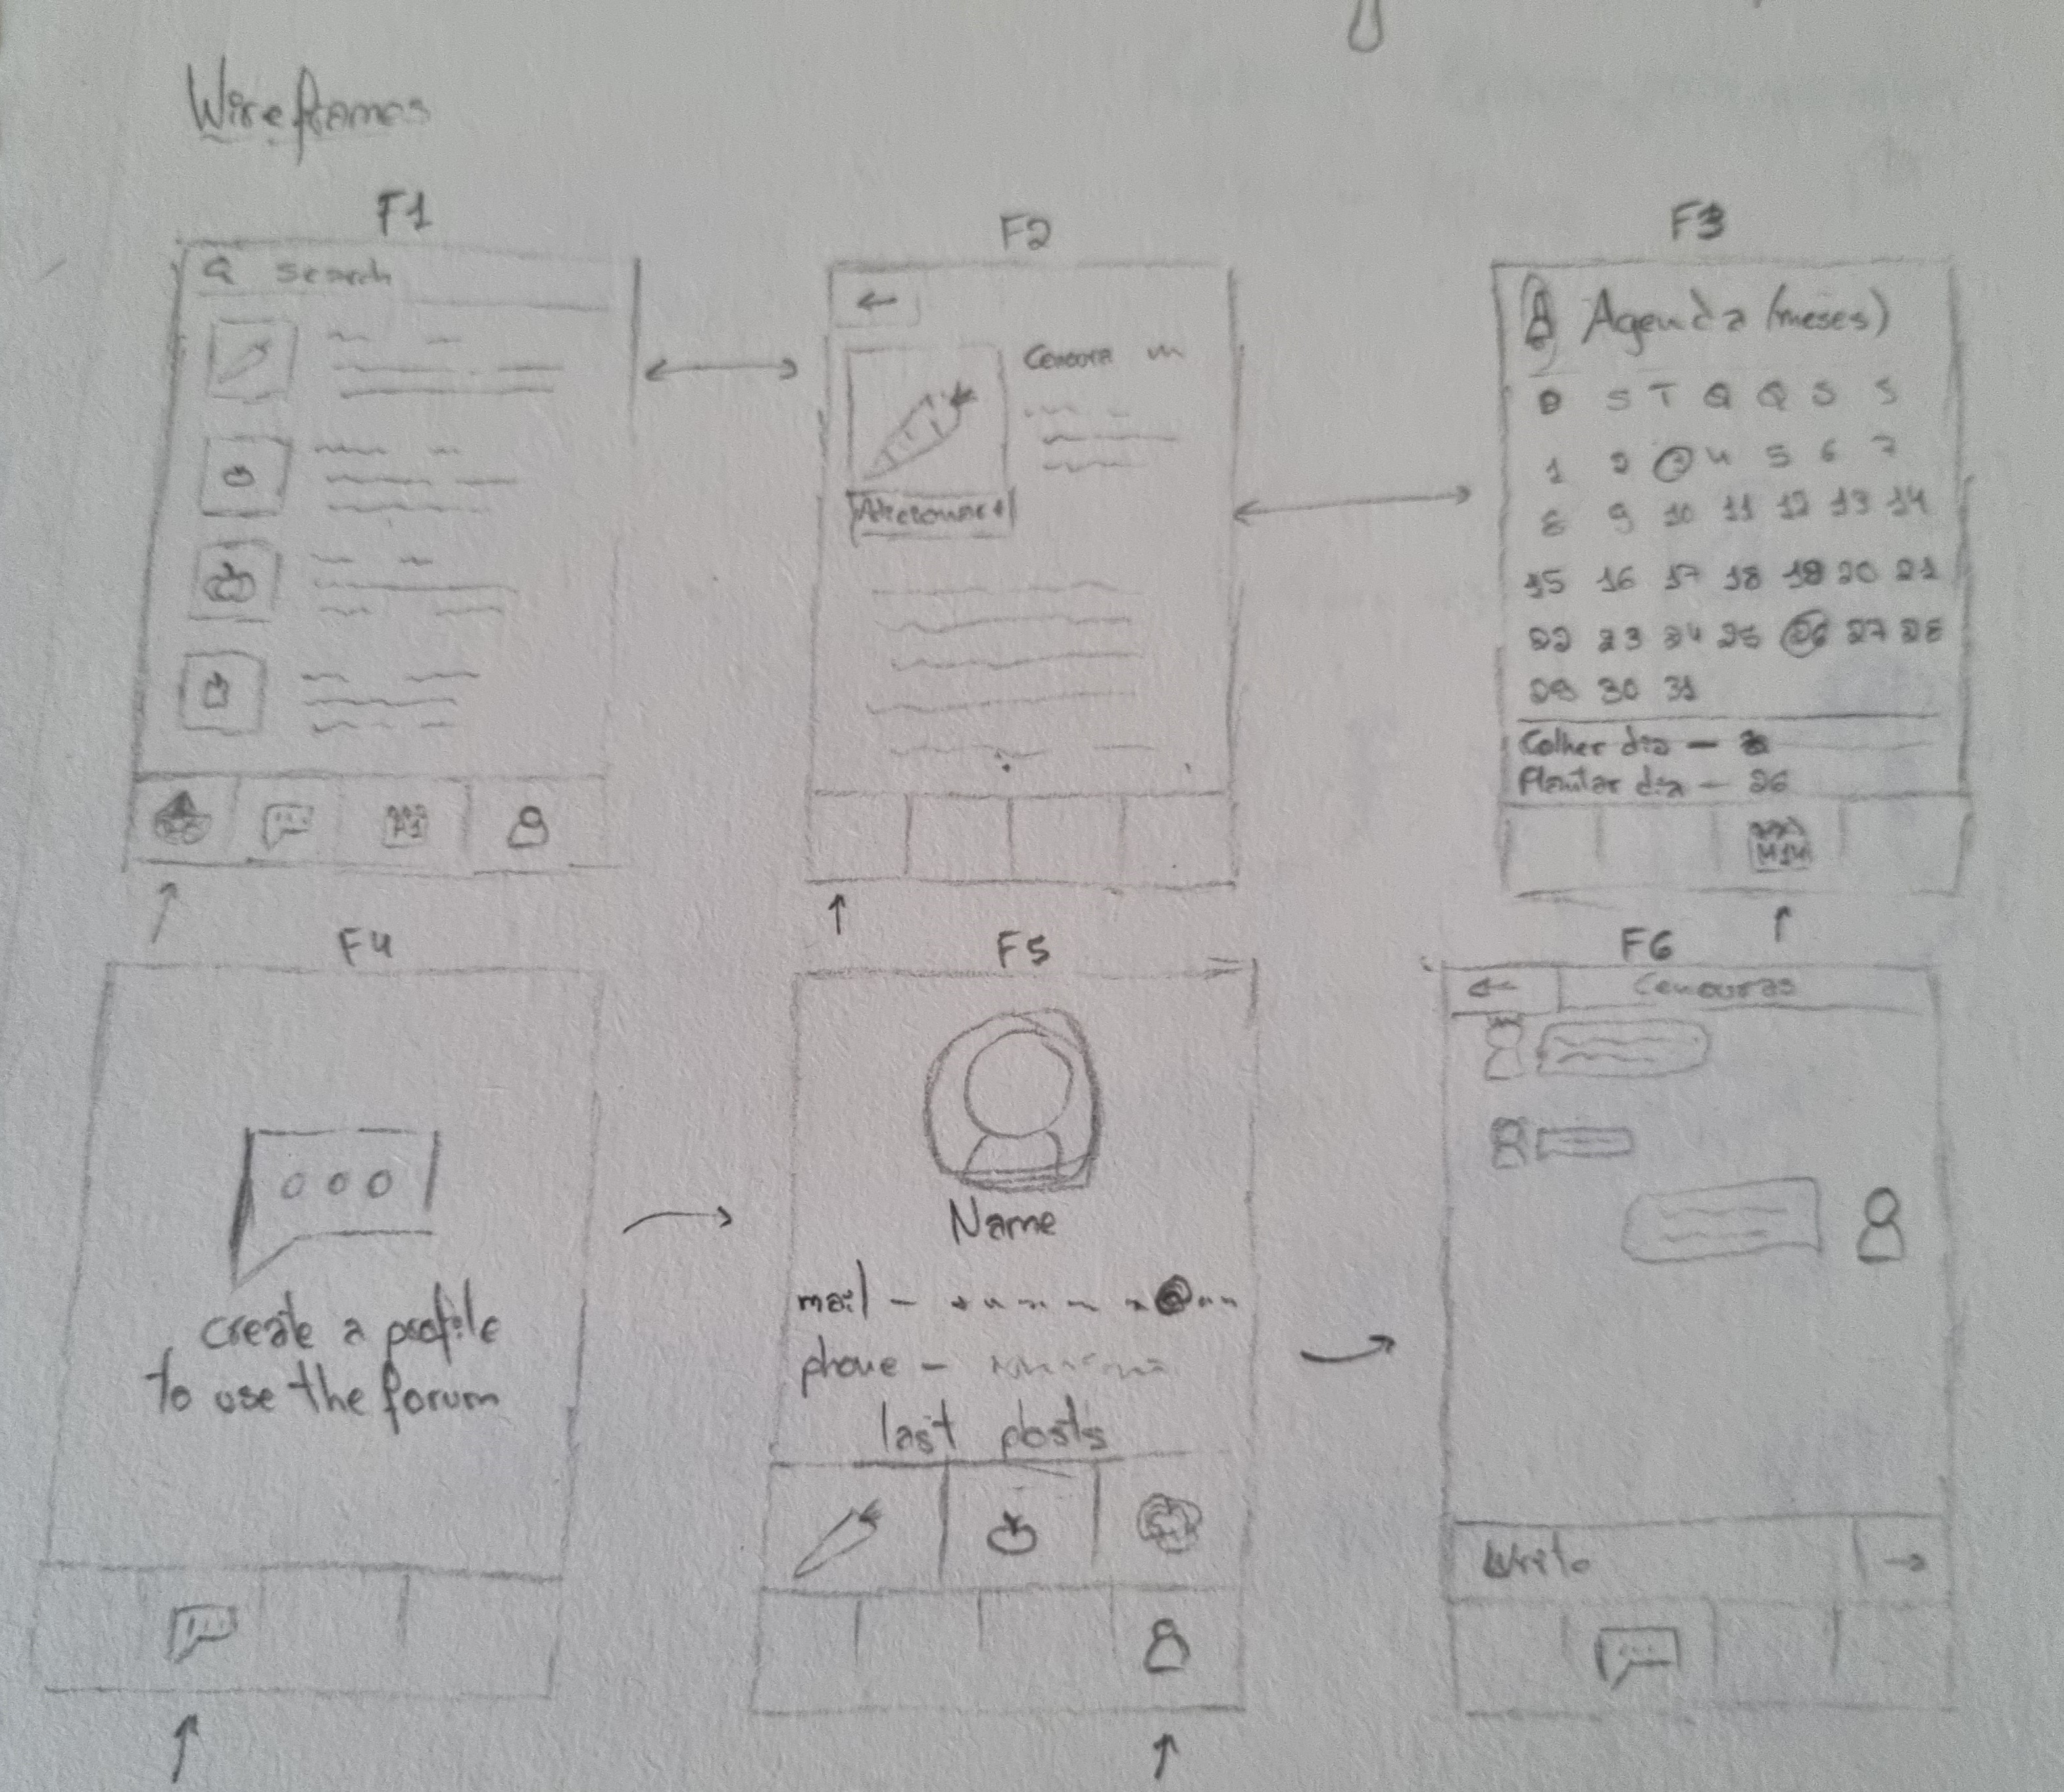 Wireframes
F1
Search
F2
Cenoura
Adicionar +
F3
Agenda (meses)
D S T Q Q S S
1 2 3 4 5 6 7
8 9 10 11 12 13 14
15 16 17 18 19 20 21
22 23 24 25 26 27 28
29 30 31
Colher dia -
Plantar dia - 26
F4
create a profile
to use the forum
F5
Name
mail - @
phone -
last posts
F6
Cenouras
Write